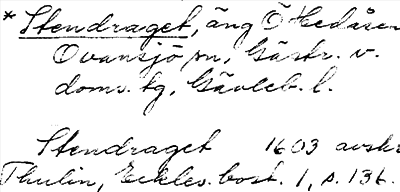 * Stendraget, äng Ö Hedåsen
Ovansjö sn, Gästr. v.
doms. tg, Gävleb. l.
Stendraget 1603 avskr
Thulin, Ecklev. bost. 1, s. 136.